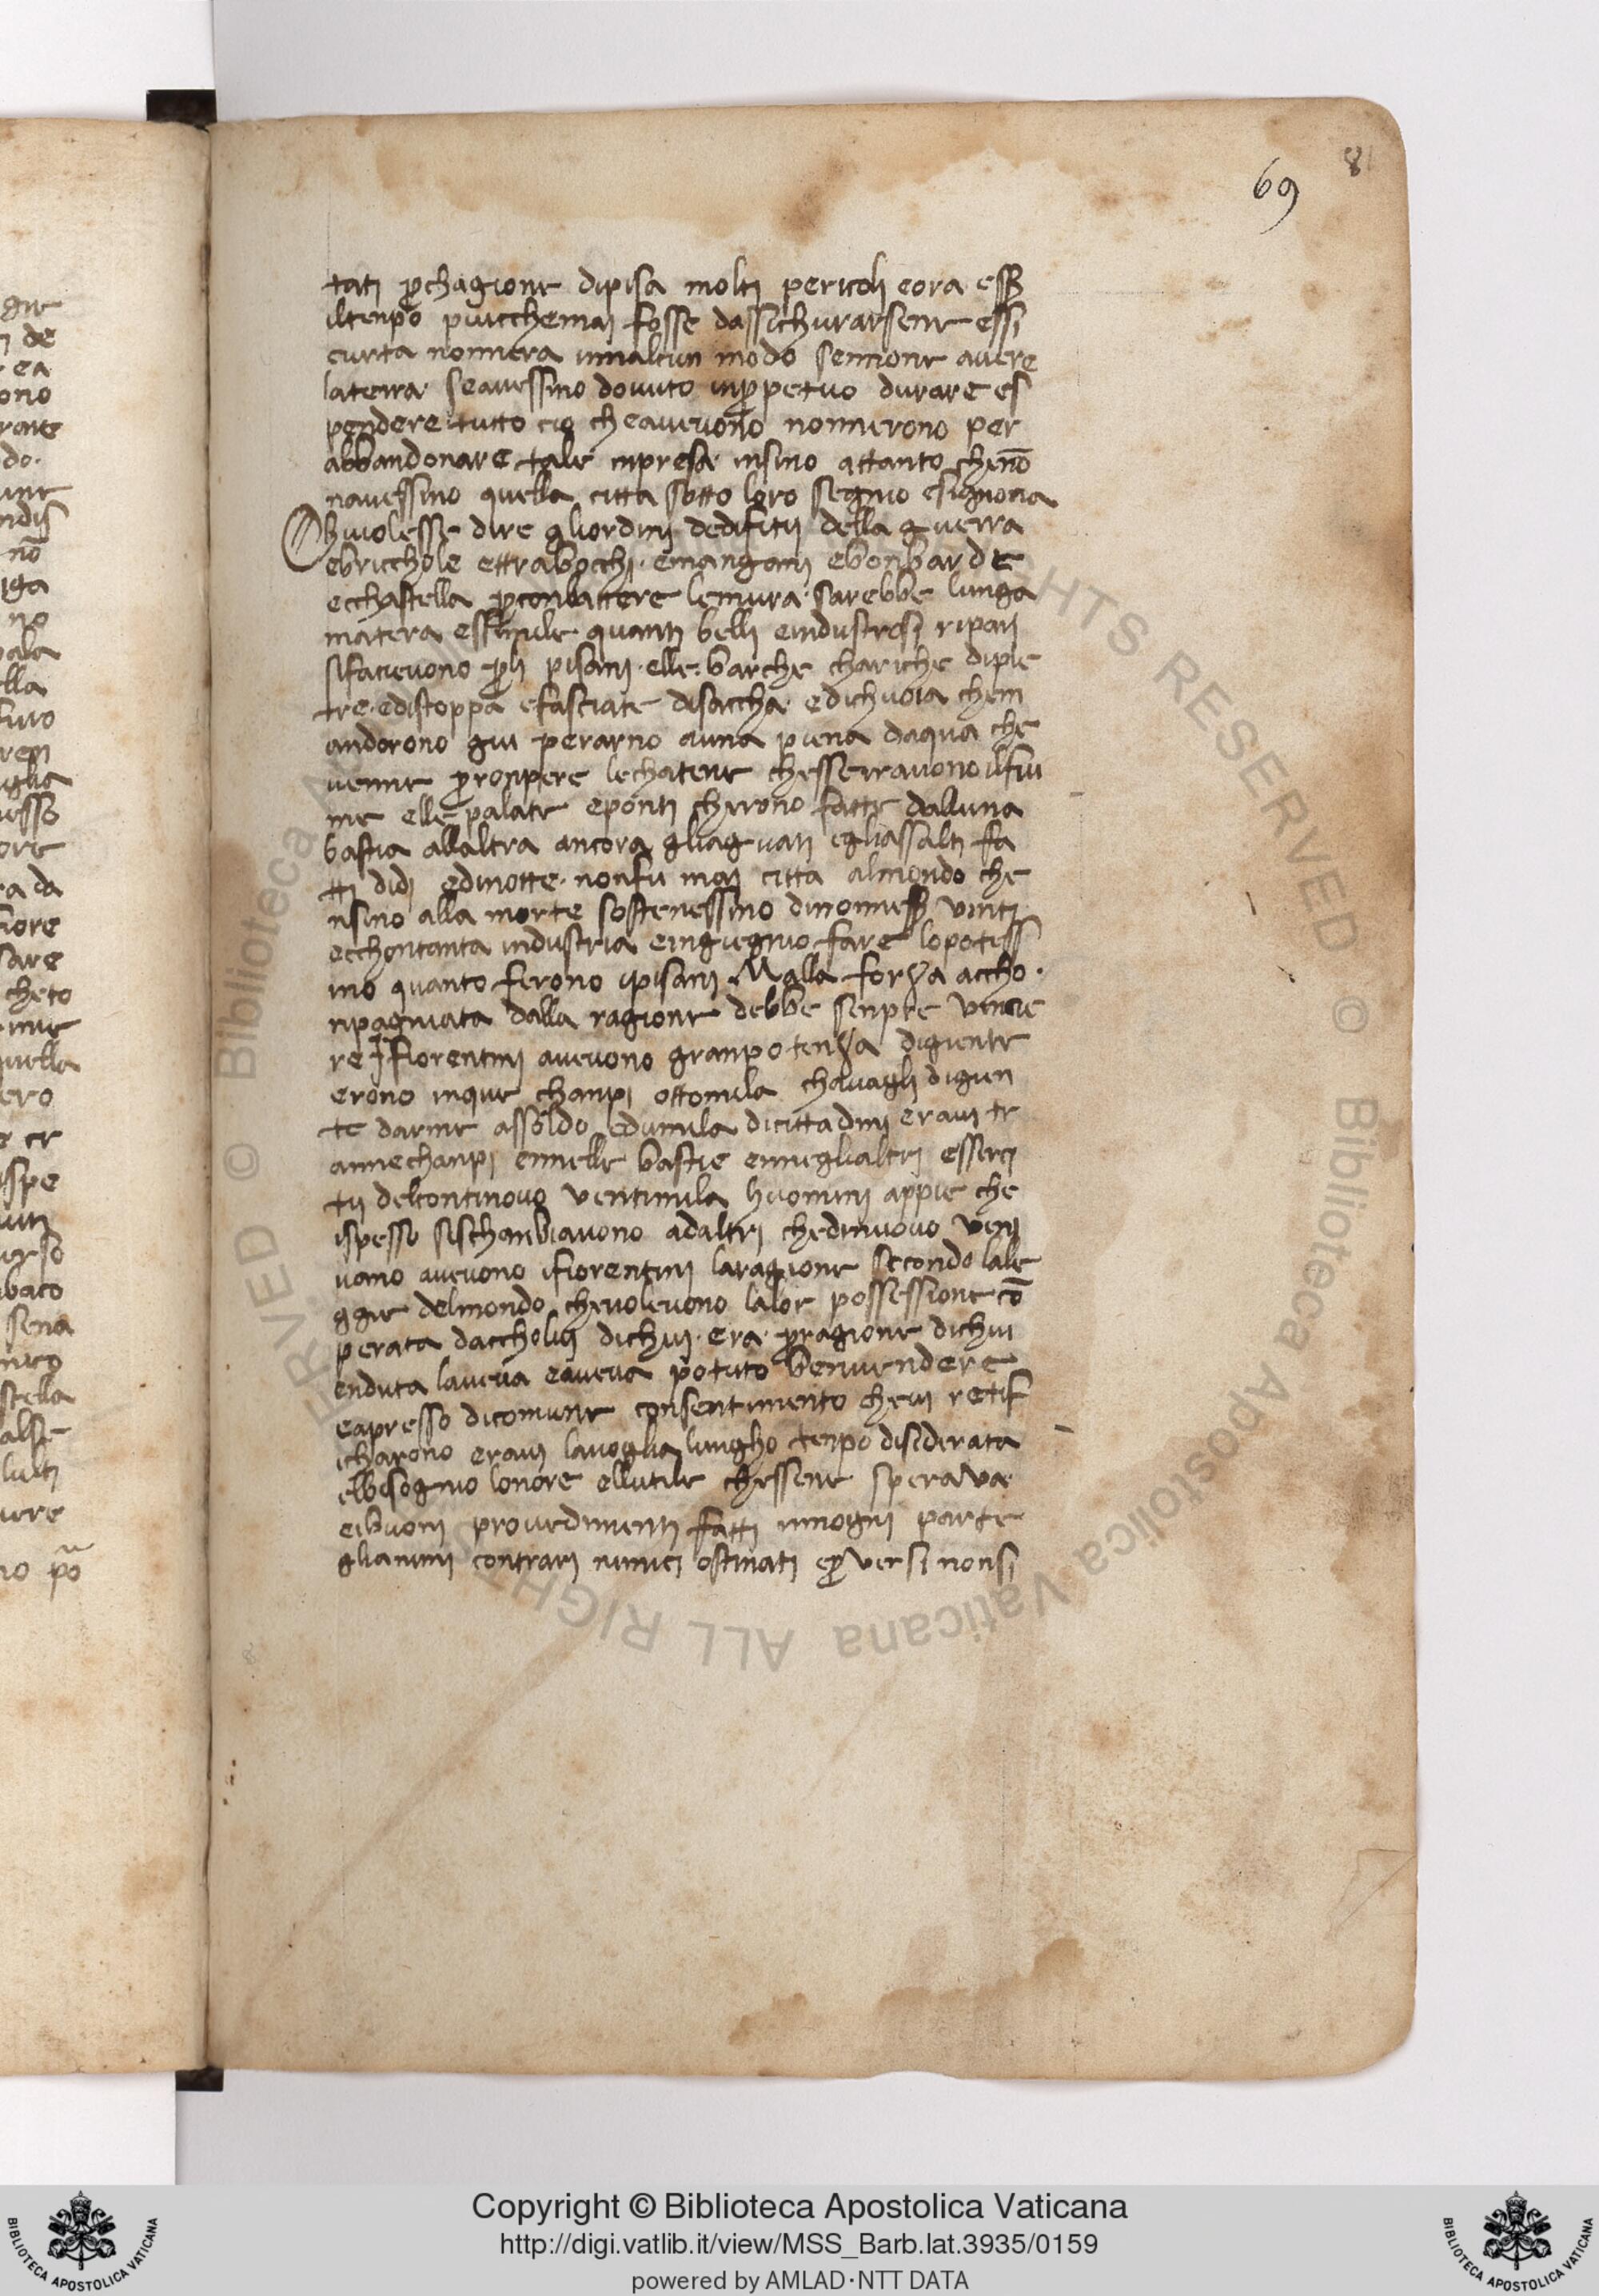 69
8
tati p̱chagione dipisa molti pericoli eora essē
iltenpo piucchemai fosse dassichurarsene essi
curta nonnera innalcun modo sennone avere
laterra seauessino dovuto inp̱petuo durare es
pendere tutto cio cheauevono nonnerono per
abbandonare tale inpresa insino attanto chenō
nauessino quella citta sotto loro segnio esignoria
Chiuolesse dire gliordini dedifitii della guerra
ebricchole ettrabocchi emangani ebonbarde
ecchastella p̱conbattere lemura sarebbe lunga
matera essimile quanti belli eindustriosi ripari
sifacievono p̱li pisani elle barche chariche dipie
tre edistoppa efasciate disaccha edichuoia chem
andorono giu perarno auna piena daqua che
uenne p̱ronpere lechatene chesserrauono ilfiu
me elle palate eponti cherono fatte dalluna
bastia allaltra ancora gliaguati egliassalti fa
tti didi edinotte nonfu mai citta almondo che
nsino alla morte sostenessino dinonness̄ vinti
ecchontanta industria eingiegnio fare lopotess
ino quanto ferono ipisani Malla forza accho
npagniata dalla ragione debbe senpre vincie
re Ifiorentini avevono granpotenza digiente
erono inque chanpi ottomila chavagli digien
te darme assoldo edumila dicittadini eravi tr
annechanpi ennelle bastie enneglialtri esserci
tii delcontinovo ventimila huomini appie che
ispesso sischanbiavono adaltri chedinuovo veni
vano avevono ifiorentini laragione secondo lale
ggie delmondo chevolevono lalor possessione cō
perata daccholui dichui era p̱ragione dichui
enduta laveva eaveva potuto benvendere
eapresso dicomune consentimento chevi retif
icharono eravi lavoglia lungho tenpo disiderata
elbisognio lonore ellutile chessene sperava
eibuoni provedimenti fatti innogni parte
glianimi contrari nimici ostinati ep̱versi nonsi
Copyright © Biblioteca Apostolica Vaticana
http://digi.vatlib.it/view/MSS_Barb.lat.3935/0159
powered by AMLAD·NTT DATA
BIBLIOTECA APOSTOLICA VATICANA
BIBLIOTECA APOSTOLICA VATICANA